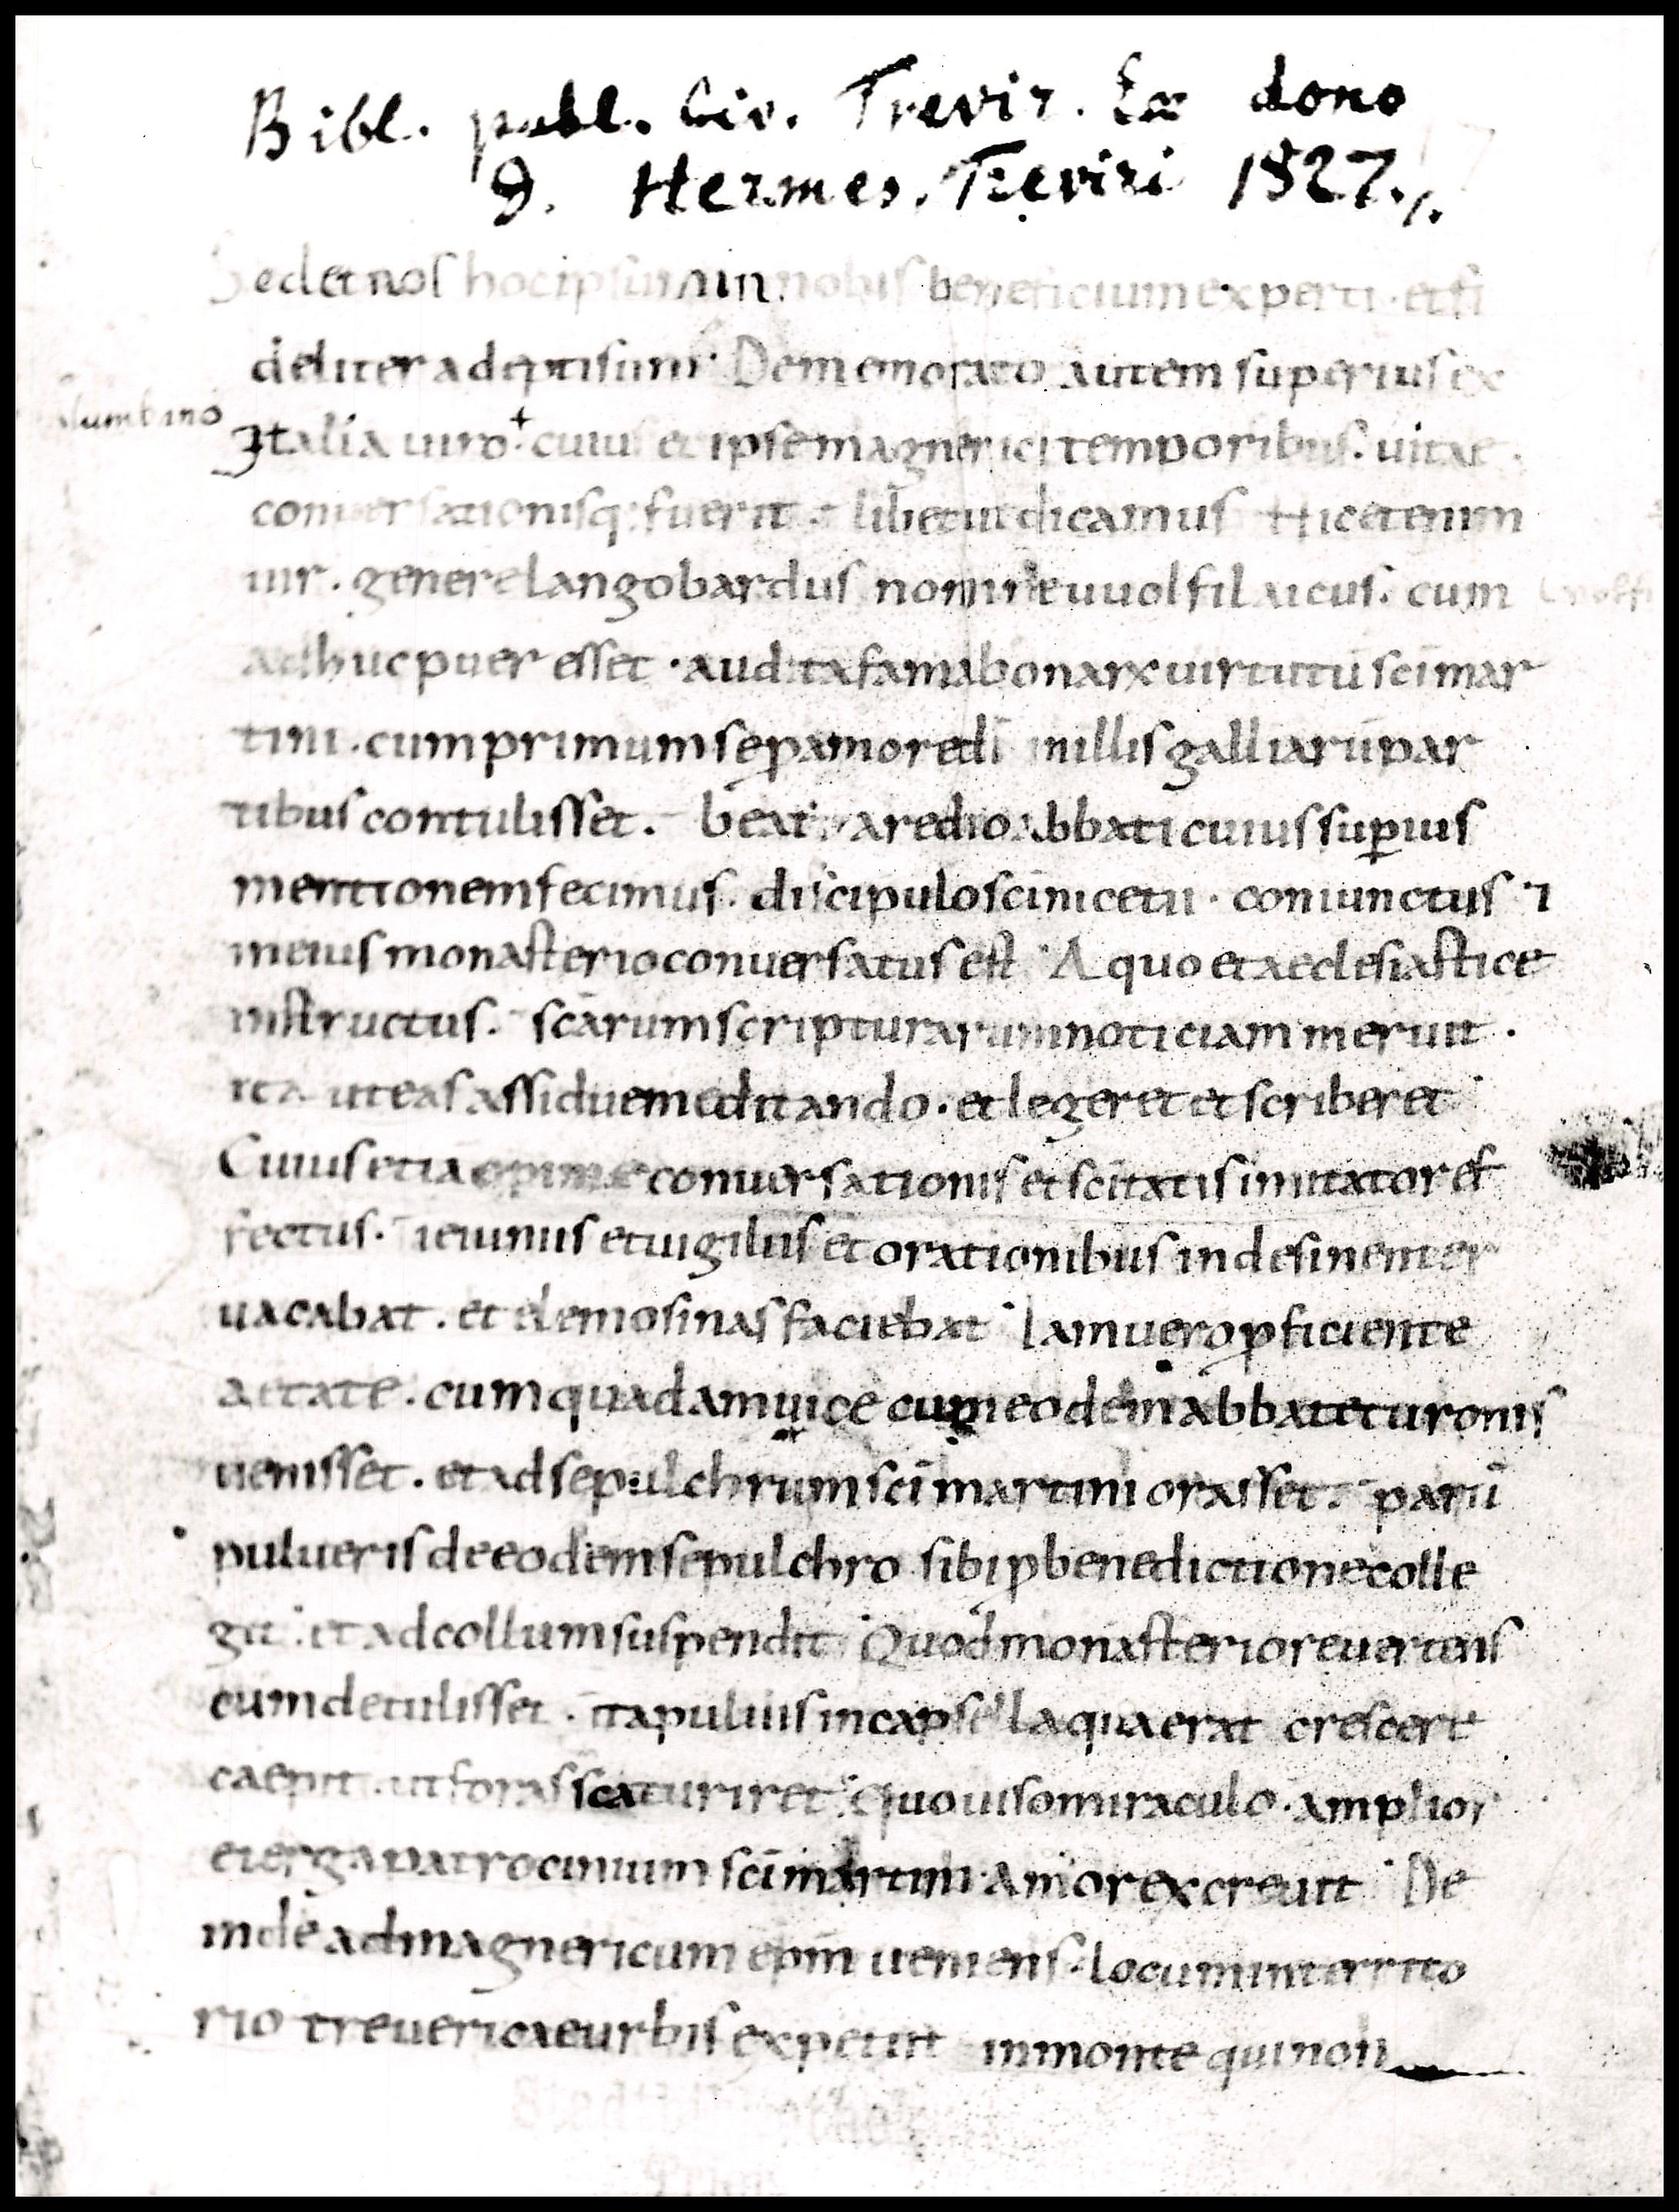 Bibl. publ. Civ. Trevir. Ex dono
D. Hermes, Treviri 1827.
Sed et nos hoc ipsum in nobis beneficium experti · et fi
deliter adepti sum᾽ De memorato autem superius ex
lumbino
Italia uiro + cuius et ipse magnerici temporibus · uitae ·
conuersationisq; fuerit · libet ut dicamus Hic etenim
uir · genere langobardus nomine uuolfilaicus · cum
adhuc puer esset · audita fama bonarꝝ uirtutū sci mar
tini · cum primum se ꝑ amore dī in illis galliarū par
tibus contulisset · beato aredio abbati cuius supius
mentionem fecimus · discipulo sci nicetii · coniunctus · i
in eius monasterio conuersatus est · A quo et aeclesiastice
instructus · scārum scripturarum noticiam meruit ·
ita ut eas assidue meditando · et legeret et scriberet
Cuius etiā opime conuersationis et scitatis imitator ef
fectus · ieiuniis et uigiliis et orationibus indesinenter
uacabat · et elemosinas faciebat Iam uero ꝓficiente
aetate · cum quadam uice cum eodem abbate turonis
uenisset · et ad sepulchrum sci martini orasset · parū
pulueris de eodem sepulchro sibi ꝓ benedictione colle
git · et ad collum suspendit Quod monasterio reuertens
cum detulisset · ita puluis in capsella qua erat crescere
caepit · ut foras scaturiret · Quo uiso miraculo · amplior
ei erga patrocinium sci martini amor excreuit De
inde ad magnericum epm ueniens · locum in territo
rio treuericae urbis expetiit in monte qui non